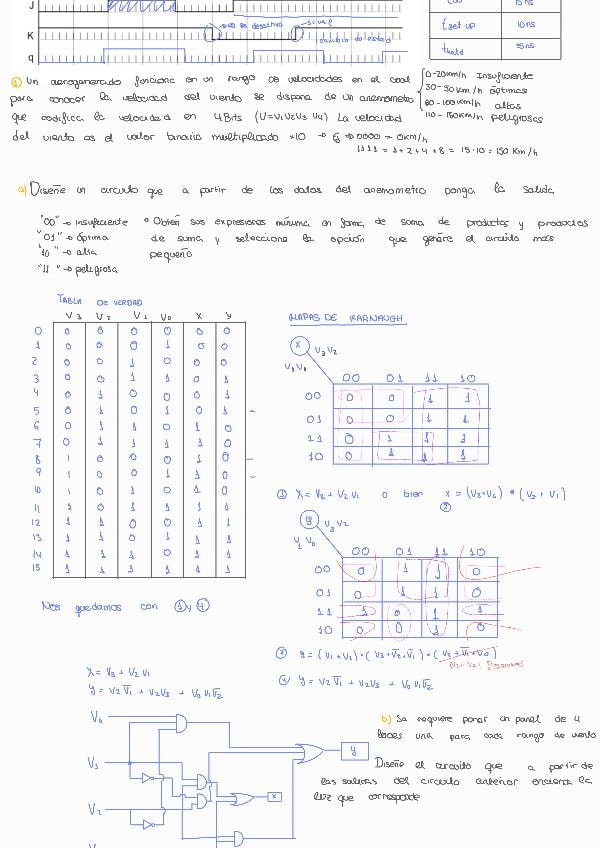 J
K
q
no se desactiva
cambio de estado
t set up 10ns
t hold 5ns
Un aerogenerador funciona en un rango de velocidades en el cual
para conocer la velocidad del viento se dispone de un anemometro
que codifica la velocidad en 4Bits (V=V1V2V3V4) La velocidad
del viento es el valor binario multiplicado x10 → Ej → 0000 = 0Km/h
1111 = 1+2+4+8 = 15·10 = 150 Km/h
0-20km/h Insuficiente
30-50km/h óptimas
60-100km/h altas
110-150km/h peligrosas
a) Diseñe un circuito que a partir de los datos del anemometro ponga la salida
"00" → insuficiente
"01" → óptima
"10" → alta
"11" → peligrosa
• Obtén sus expresiones mínima en forma de suma de productos y productos
de suma y seleccione la opción que genere el circuito más
pequeño
TABLA DE VERDAD
V3 V2 V1 V0 X Y
0 0 0 0 0 0 0
1 0 0 0 1 0 0
2 0 0 1 0 0 0
3 0 0 1 1 0 1
4 0 1 0 0 0 1
5 0 1 0 1 0 1
6 0 1 1 0 1 0
7 0 1 1 1 1 0
8 1 0 0 0 1 0
9 1 0 0 1 1 0
10 1 0 1 0 1 0
11 1 0 1 1 1 1
12 1 1 0 0 1 1
13 1 1 0 1 1 1
14 1 1 1 0 1 1
15 1 1 1 1 1 1
MAPAS DE KARNAUGH
X V3 V2
V1 V0
00 01 11 10
00 0 0 1 1
01 0 0 1 1
11 0 1 1 1
10 0 1 1 1
① X = V3 + V2 V1 o bien X = (V3+V2) • (V3 + V1)
②
y V3 V2
V1 V0
00 01 11 10
00 0 1 1 0
01 0 1 1 0
11 1 0 1 1
10 0 0 1 0
③ y = (V1 + V2) • (V3 + V̅2 + V̅1) • (V2 + V̅1 + V0)
④ y = V2 V̅1 + V2V3 + V0 V1 V̅2
Nos quedamos con ① y ④
X = V3 + V2 V1
y = V2 V̅1 + V2V3 + V0 V1 V̅2
V0
V1
V2
X
y
b) Se requiere poner un panel de 4
luces una para cada rango de viento
Diseñe el circuito que a partir de
las salidas del circuito anterior encienda la
luz que corresponde